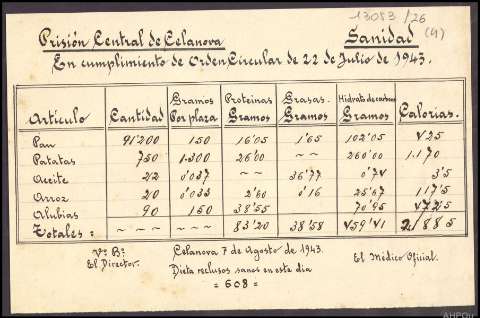 13083/26
(4)
Prisión Central de Celanova Sanidad
En cumplimiento de Orden Circular de 22 de Julio de 1943.
Artículo Cantidad Gramos Por plaza Proteinas Gramos Grasas. Gramos Hidrats de carbono Gramos Calorías.
Pan 91'200 150 16'05 1'65 102'05 425
Patatas 750 1.300 26'00 ~~ 260'00 1.170
Aceite 22 0'037 ~~ 36'77 0'74 3'5
Arroz 20 0'033 2'60 0'16 25'67 117'5
Alubias 90 160 38'55 70'95 472'5
Totales: ~ ~ ~ ~ 83'20 38'58 459'41 2/885
Vº Bº Celanova 7 de Agosto de 1943.
El Director. El Médico Oficial.
Dieta reclusos sanos en este dia
= 608 =
AHPOu